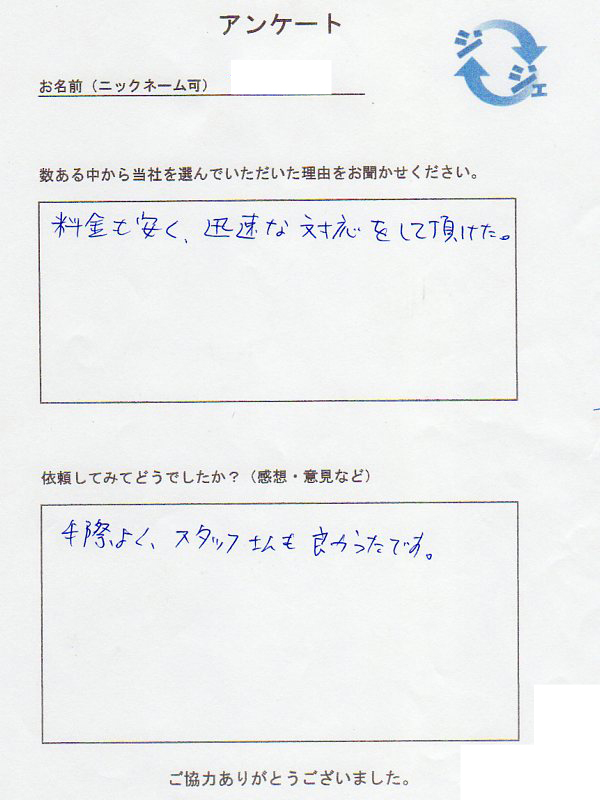 アンケート
ジジェ
お名前（ニックネーム可）
数ある中から当社を選んでいただいた理由をお聞かせください。
料金も安く、迅速な対応をして頂けた。
依頼してみてどうでしたか？（感想・意見など）
手際よく、スタッフさんも良かったです。
ご協力ありがとうございました。